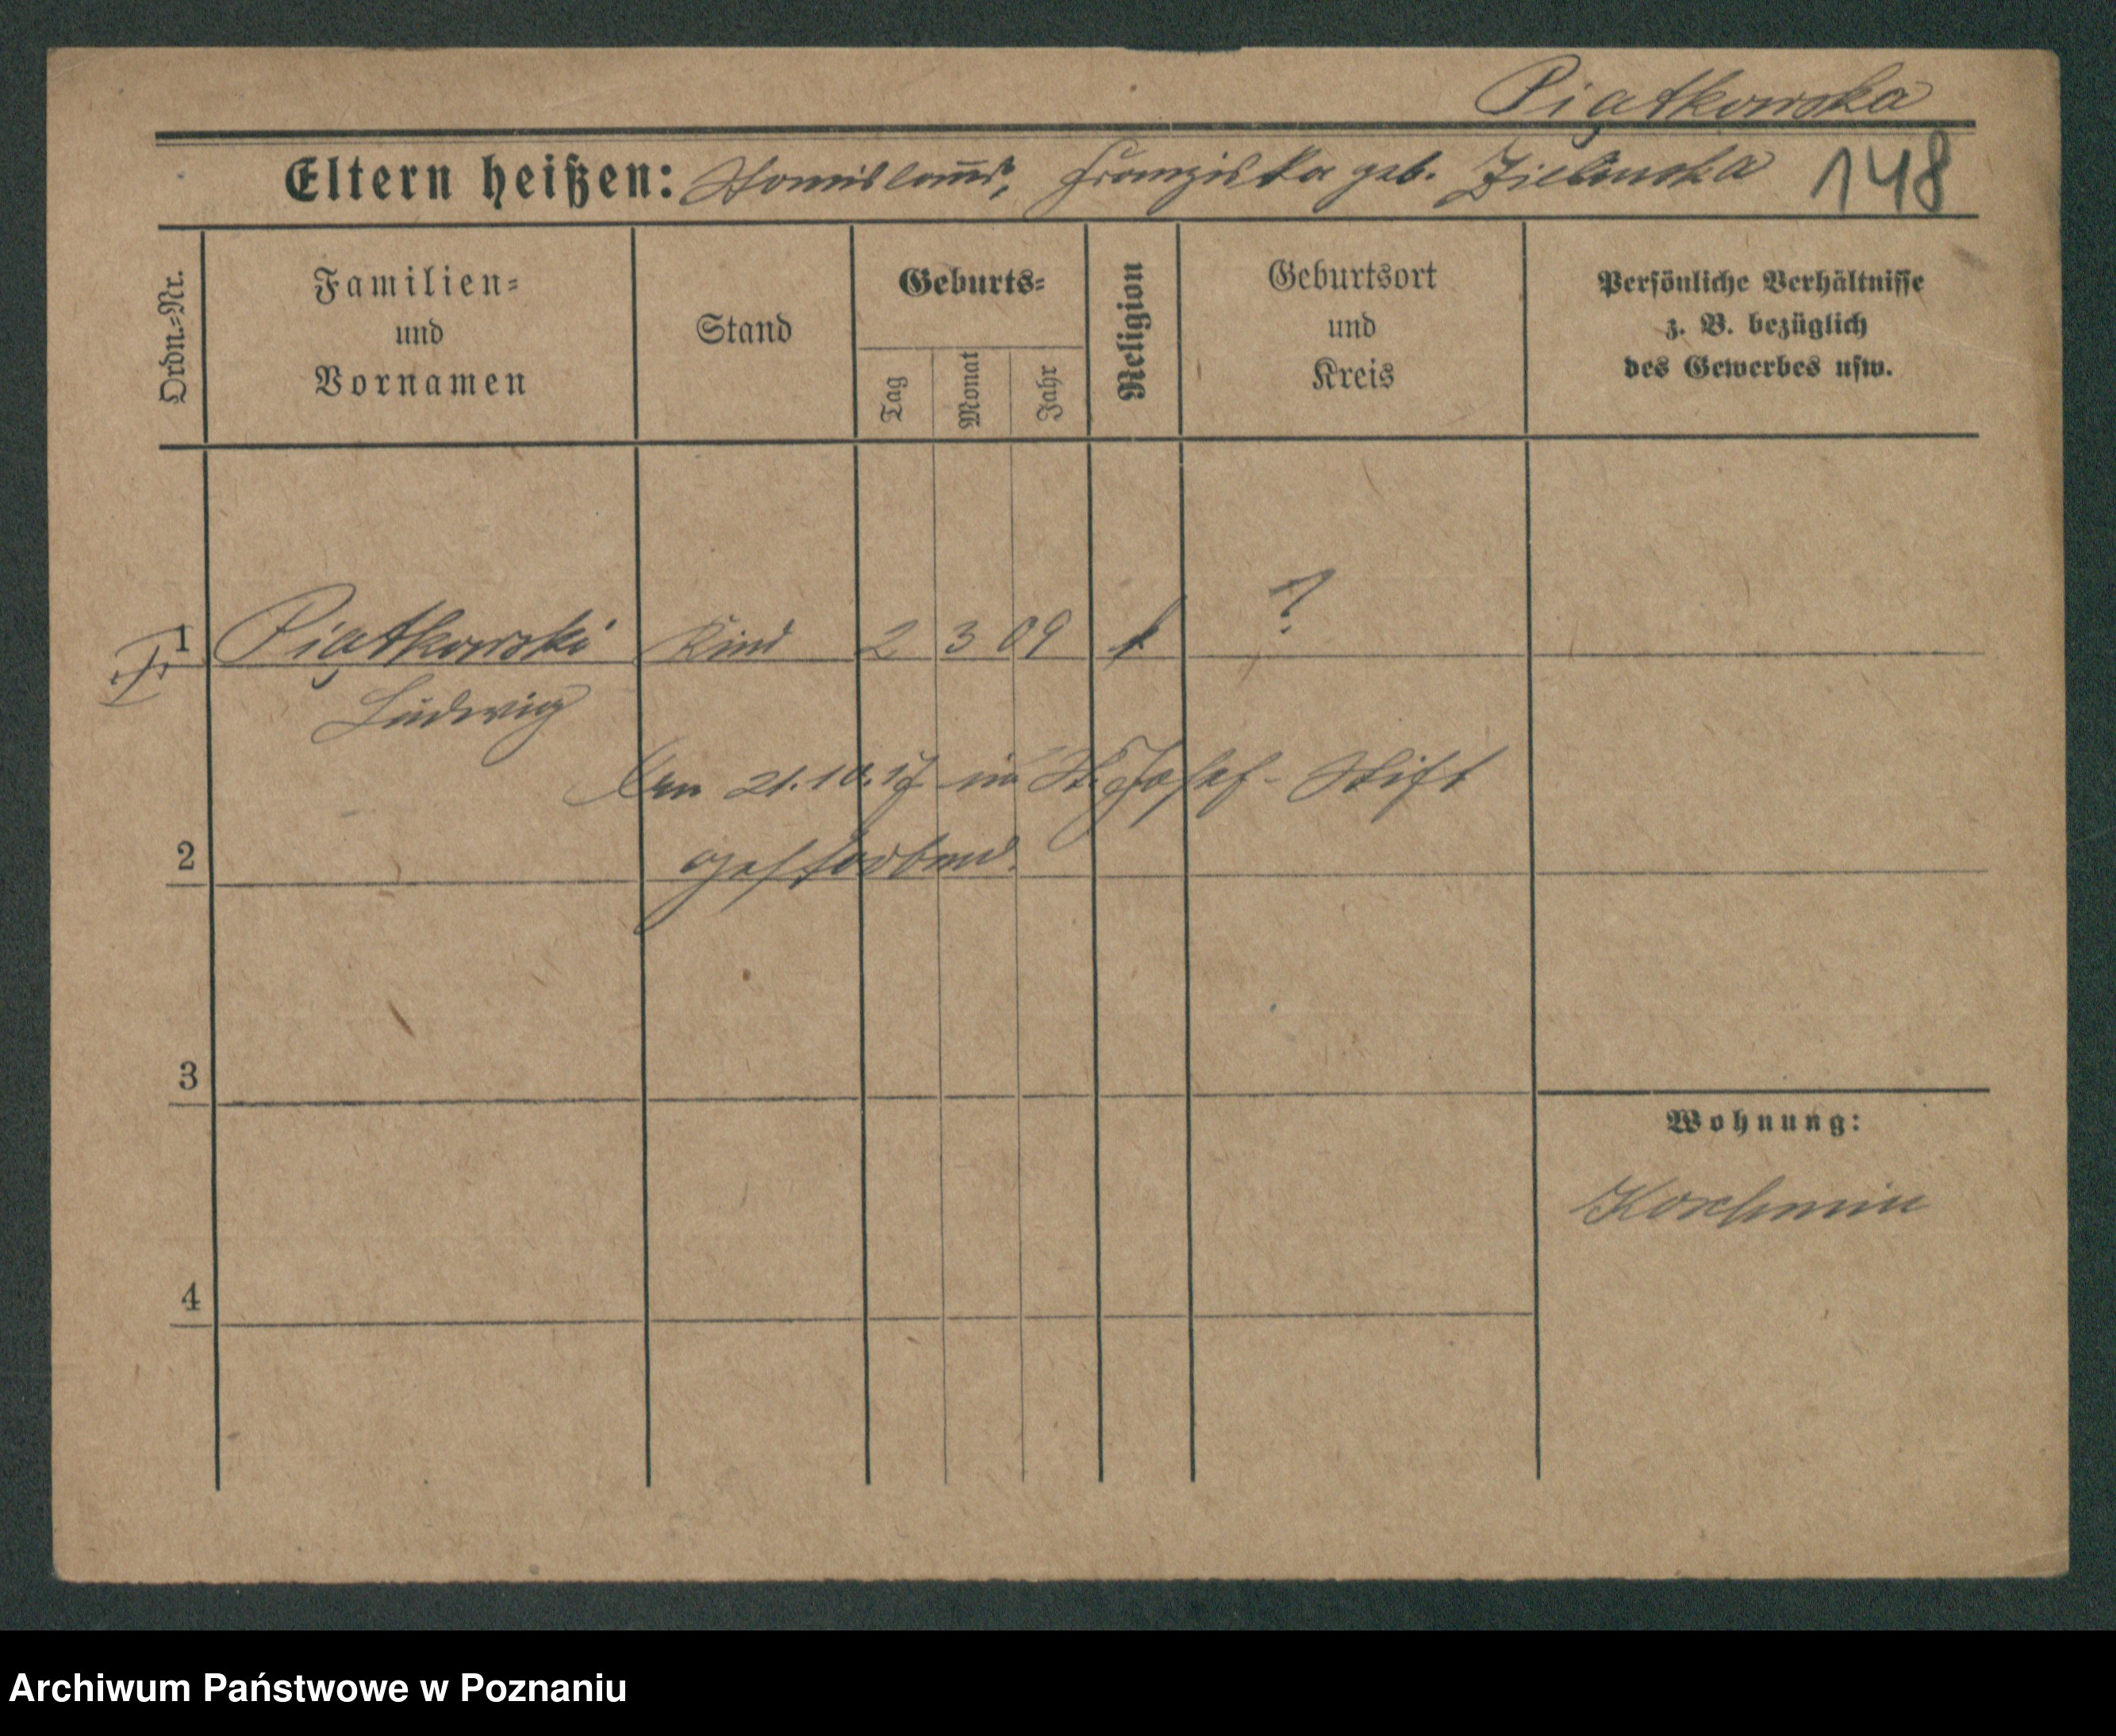 Piątkowska
Eltern heißen: Stanislaus, Franziska geb. Zielinska 148
Ordn.=Nr.
Familien=
und
Vornamen
Stand
Geburts=
Tag
Monat
Jahr
Religion
Geburtsort
und
Kreis
Persönliche Verhältnisse
z. B. bezüglich
des Gewerbes usw.
1 Piątkowski Kind 2 3 09 k ?
Ludwig
Am 21.10.17 im St. Josef-Stift
gestorben.
2
3
Wohnung:
Koschmin
4
Archiwum Państwowe w Poznaniu